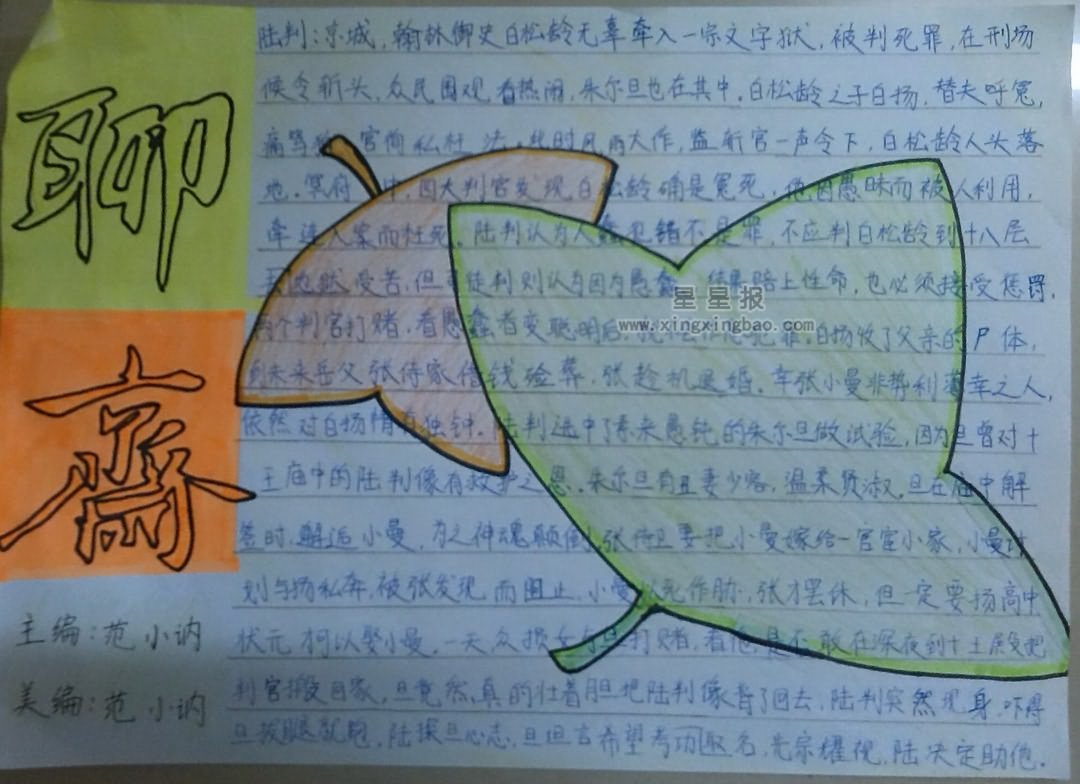 聊
斋
主编:范小讷
美编:范小讷
陆判:京城,翰林御史白松龄无辜牵入一宗文字狱,被判死罪,在刑场
候令斩头,众民围观看热闹,朱尔旦也在其中。白松龄之子白扬,替夫呼冤,
痛骂 官徇私枉法,此时风雨大作,监斩官一声令下,白松龄人头落
地。冥府 中,因大判官发现白松龄确是冤死,他因愚昧而被人利用,
牵进人案而枉死。陆判认为人蠢犯错不是罪,不应判白松龄到十八层
地狱受苦,但 判则认为因为愚蠢 结果赔上性命,也必须接受惩罚,
两个判官打赌,看愚蠢者变聪明后, 白扬收了父亲的尸体,
到未来岳父张侍家借钱殓葬,张趁机退婚。幸张小曼非势利薄幸之人,
依然对白扬情有独钟。陆判选中了素来愚钝的朱尔旦做试验,因为旦曾对十
王庙中的陆判像有救护之恩。朱尔旦有且妻少容,温柔贤淑。旦在庙中解
签时,邂逅小曼,为之神魂颠倒,张侍卫要把小曼嫁给一官宦小家,小曼计
划与扬私奔,被张发现而阻止,小曼以死作胁,张才罢休,但一定要扬高中
状元才可以娶小曼。一天众损友与旦打赌,看他是不敢在深夜到十王殿把
判官搬回家,旦竟然真的壮着胆把陆判像背了回去,陆判突然现身,吓得
旦拔腿就跑,陆探旦心志,旦坦言希望考功取名,光宗耀祖,陆决定助他。
星星报
www.xingxingbao.com